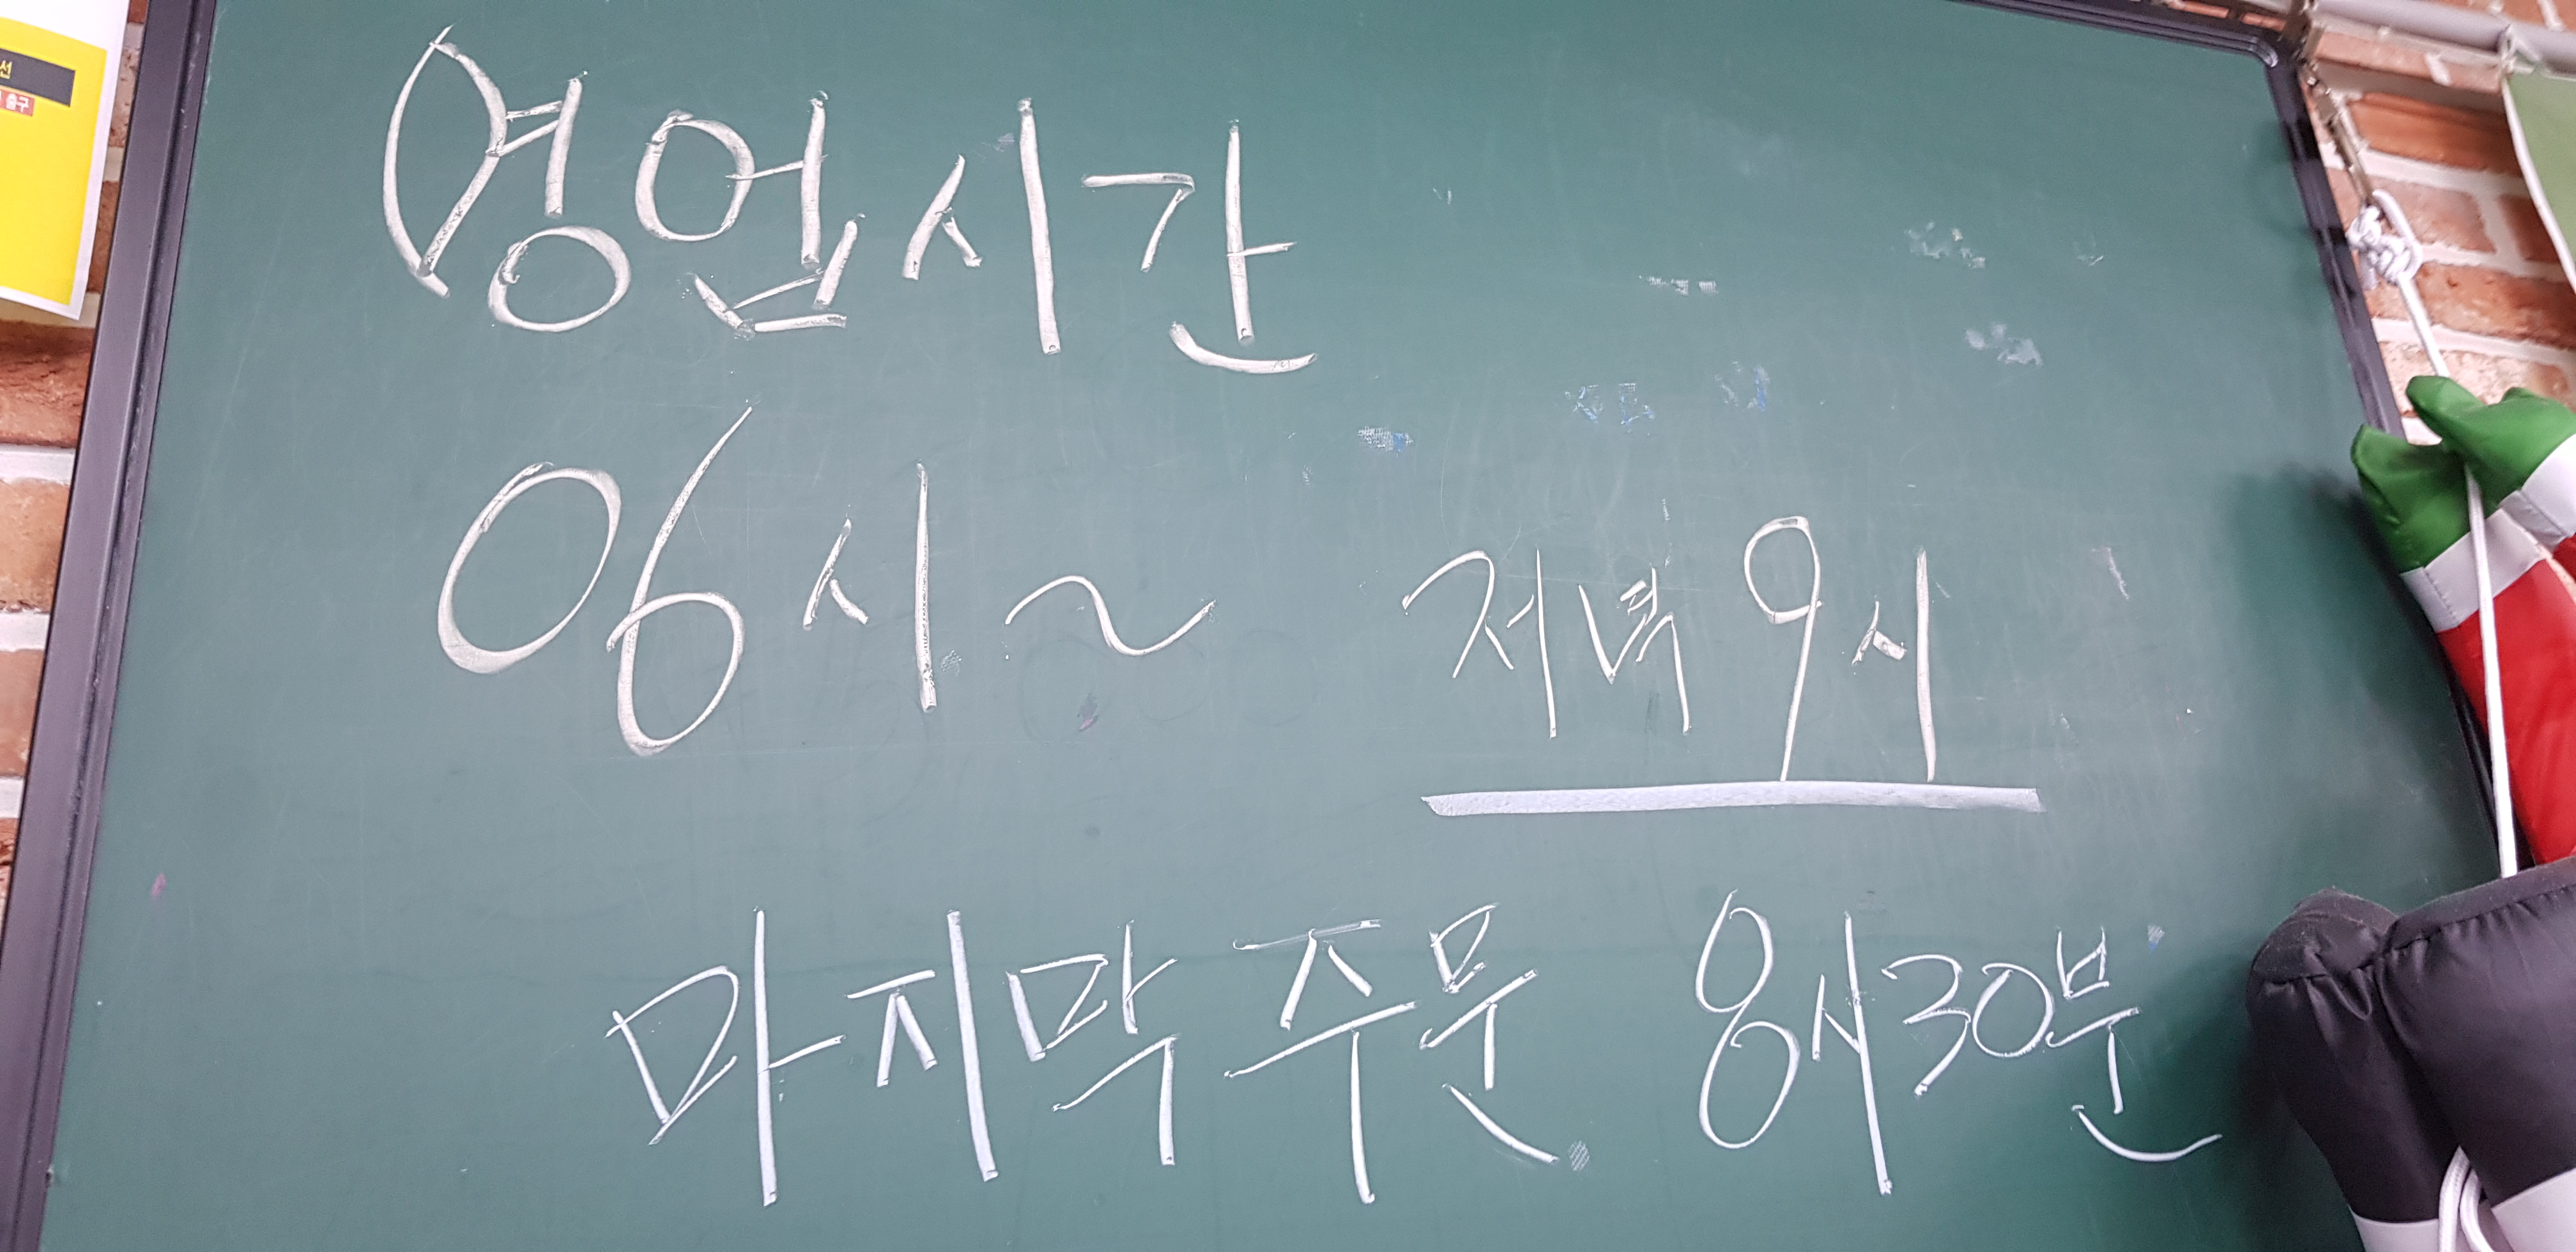 선
출구
영업시간
06시 ~ 저녁 9시
마지막 주문 8시30분